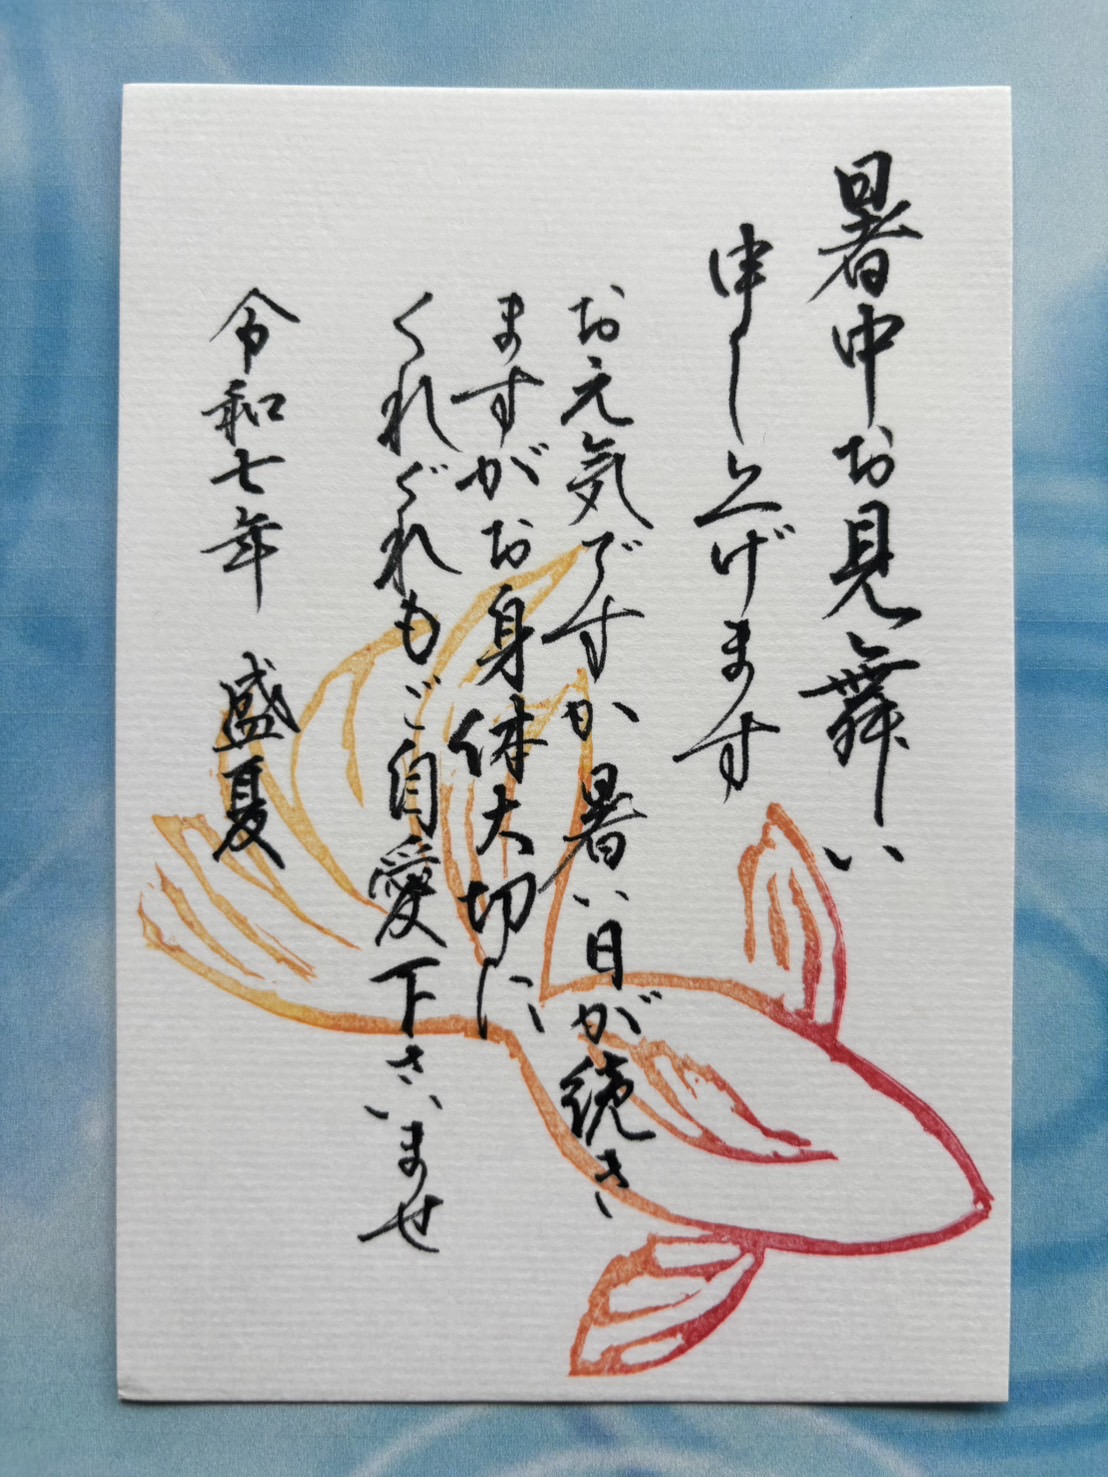 暑中お見舞い
申し上げます
お元気ですか 暑い日が続き
ますがお身体大切に
くれぐれもご自愛下さいませ
令和七年 盛夏